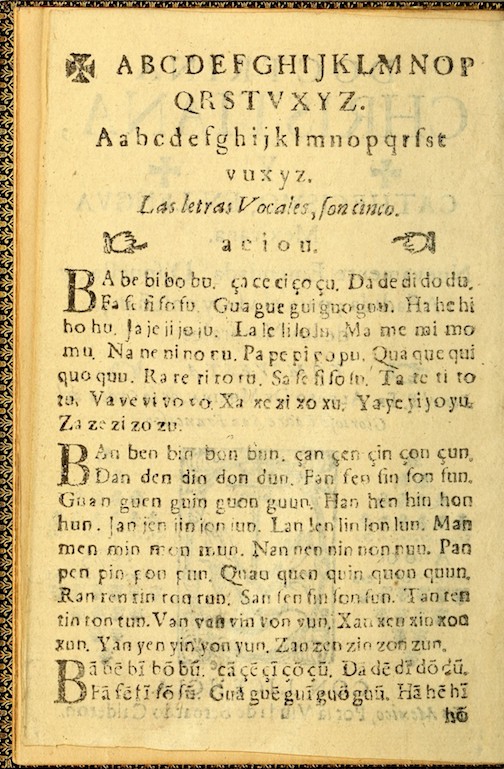 ABCDEFGHIJKLMNOP
QRSTVXYZ.
Aabcdefghijklmnopqrſst
vuxyz.
Las letras Vocales, ſon cinco.
a e i o u.
BA be bi bo bu. ça ce ci ço çu. Da de di do du.
Fa fe fi fo fu. Gua gue gui guo guu. Ha he hi
ho hu. Ja je ji jo ju. La le li lo lu. Ma me mi mo
mu. Na ne ni no nu. Pa pe pi po pu. Qua que qui
quo quu. Ra re ri ro ru. Sa ſe ſi ſo ſu. Ta te ti to
tu. Va ve vi vo vo. Xa xe xi xo xu. Ya ye yi yo yu.
Za ze zi zo zu.
BAn ben bin bon bun. çan çen çin çon çun.
Dan den din don dun. Fan fen fin fon fun.
Guan guen guin guon guun. Han hen hin hon
hun. Jan jen jin jon jun. Lan len lin lon lun. Man
men min mon mun. Nan nen nin non nun. Pan
pen pin pon pun. Quan quen quin quon quun.
Ran ren rin ron run. San ſen ſin ſon ſun. Tan ten
tin ton tun. Van ven vin von vun. Xan xen xin xon
xun. Yan yen yin yon yun. Zan zen zin zon zun.
Bā bē bī bō bū. cā çē çī çō çū. Dā dē dī dō dū.
Fā fē fī fō fū. Guā guē guī guō guū. Hā hē hī
hō